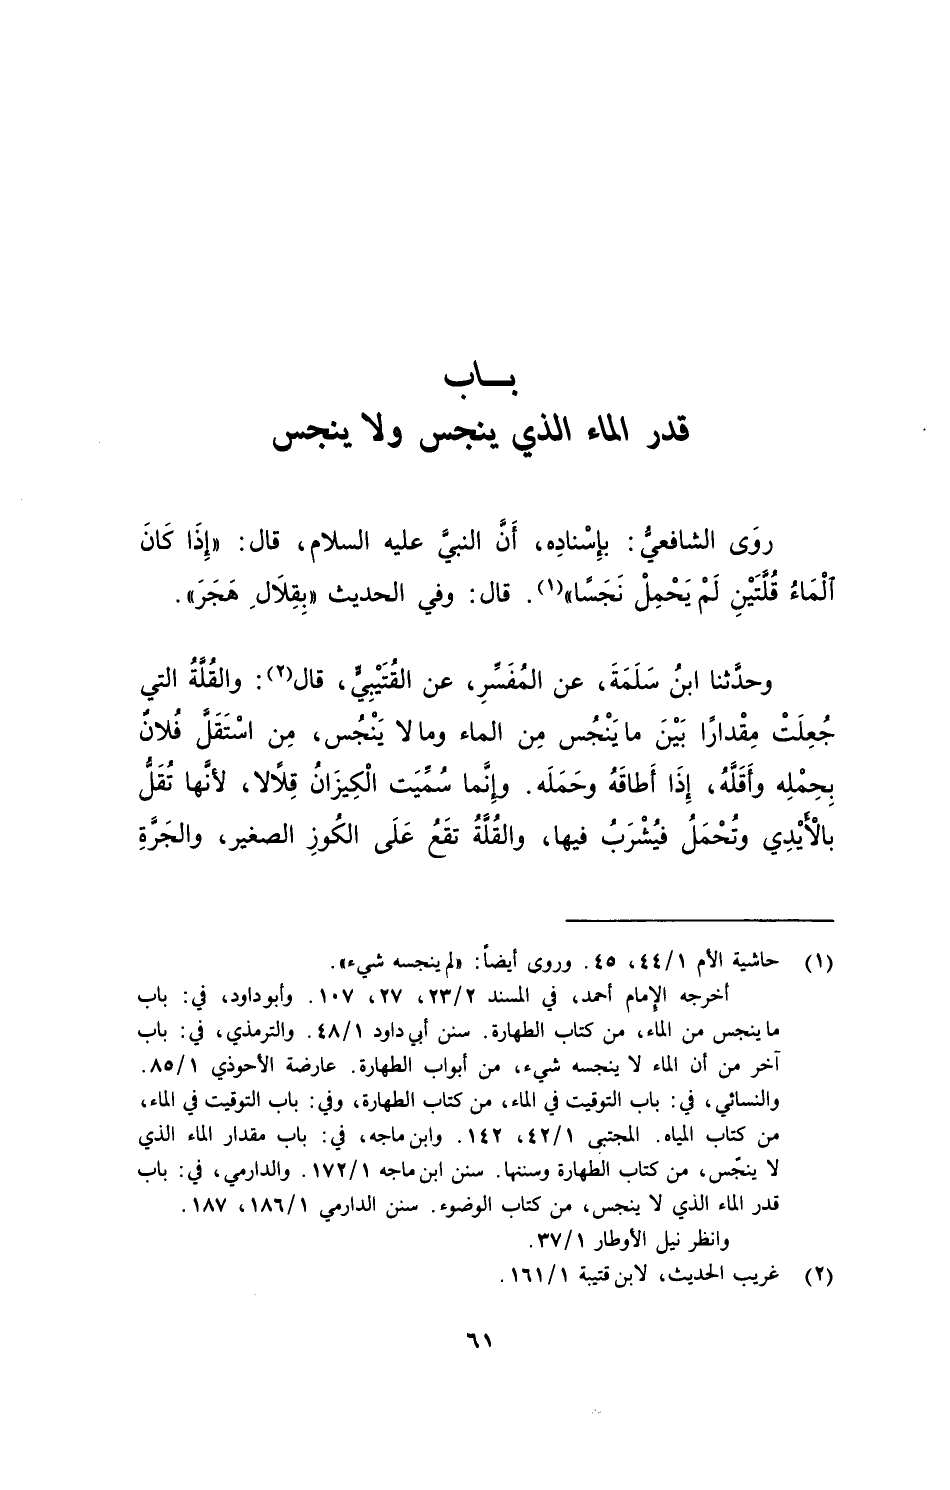 بـــاب
قدر الماء الذي ينجس ولا ينجس
روَى الشافعيُّ: بإِسْنادِه، أَنَّ النبيَّ عليه السلام، قال: «إِذَا كَانَ
ٱلْمَاءُ قُلَّتَيْنِ لَمْ يَحْمِلْ نَجَسًا»(١). قال: وفي الحديث «بِقِلَالِ هَجَرَ».
وحدَّثنا ابنُ سَلَمَةَ، عن المُفَسِّرِ، عن القُتَيْبِيِّ، قال(٢): والقُلَّةُ التي
جُعِلَتْ مِقْدارًا بَيْنَ ما يَنْجُس مِن الماء وما لا يَنْجُس، مِن اسْتَقَلَّ فُلانٌ
بِحِمْلِه وأَقَلَّهُ، إِذَا أَطَاقَهُ وحَمَلَه. وإِنَّما سُمِّيَت الْكِيزَانُ قِلَالا، لأنَّها تُقَلُّ
بالْأَيْدِي وتُحْمَلُ فيُشْرَبُ فيها، والقُلَّةُ تقَعُ عَلَى الكُوزِ الصغير، والجَرَّةِ
(١) حاشية الأم ٤٤/١، ٤٥. وروى أيضاً: «لم ينجسه شيء».
أخرجه الإمام أحمد، في المسند ٢٣/٢، ٢٧، ١٠٧. وأبو داود، في: باب
ما ينجس من الماء، من كتاب الطهارة. سنن أبي داود ٤٨/١. والترمذي، في: باب
آخر من أن الماء لا ينجسه شيء، من أبواب الطهارة. عارضة الأحوذي ٨٥/١.
والنسائي، في: باب التوقيت في الماء، من كتاب الطهارة، وفي: باب التوقيت في الماء،
من كتاب المياه. المجتبى ٤٢/١، ١٤٢. وابن ماجه، في: باب مقدار الماء الذي
لا ينجّس، من كتاب الطهارة وسننها. سنن ابن ماجه ١٧٢/١. والدارمي، في: باب
قدر الماء الذي لا ينجس، من كتاب الوضوء. سنن الدارمي ١٨٦/١، ١٨٧.
وانظر نيل الأوطار ٣٧/١.
(٢) غريب الحديث، لابن قتيبة ١٦١/١.
٦١